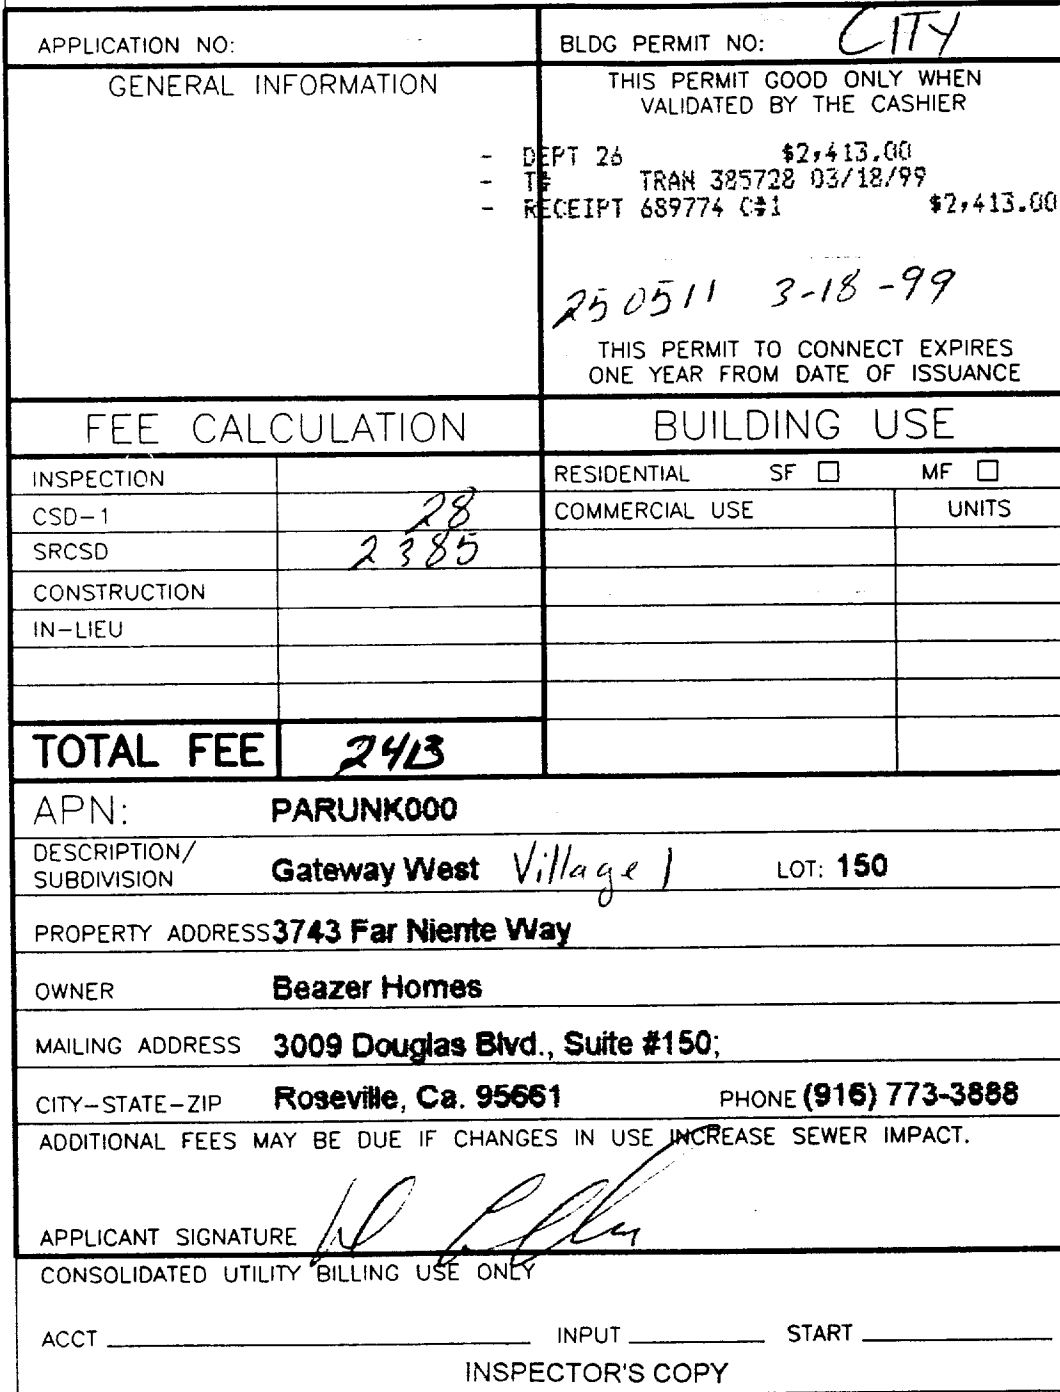 APPLICATION NO:
BLDG PERMIT NO: CITY
GENERAL INFORMATION
THIS PERMIT GOOD ONLY WHEN
VALIDATED BY THE CASHIER
- DEPT 26 $2,413.00
- T# TRAN 385728 03/18/99
- RECEIPT 689774 C#1 $2,413.00
250511 3-18-99
THIS PERMIT TO CONNECT EXPIRES
ONE YEAR FROM DATE OF ISSUANCE
FEE CALCULATION
BUILDING USE
INSPECTION
RESIDENTIAL SF ☐ MF ☐
CSD-1 28
COMMERCIAL USE UNITS
SRCSD 2385
CONSTRUCTION
IN-LIEU
TOTAL FEE 2413
APN: PARUNK000
DESCRIPTION/
SUBDIVISION Gateway West Village 1 LOT: 150
PROPERTY ADDRESS 3743 Far Niente Way
OWNER Beazer Homes
MAILING ADDRESS 3009 Douglas Blvd., Suite #150;
CITY-STATE-ZIP Roseville, Ca. 95661 PHONE (916) 773-3888
ADDITIONAL FEES MAY BE DUE IF CHANGES IN USE INCREASE SEWER IMPACT.
APPLICANT SIGNATURE
CONSOLIDATED UTILITY BILLING USE ONLY
ACCT INPUT START
INSPECTOR'S COPY